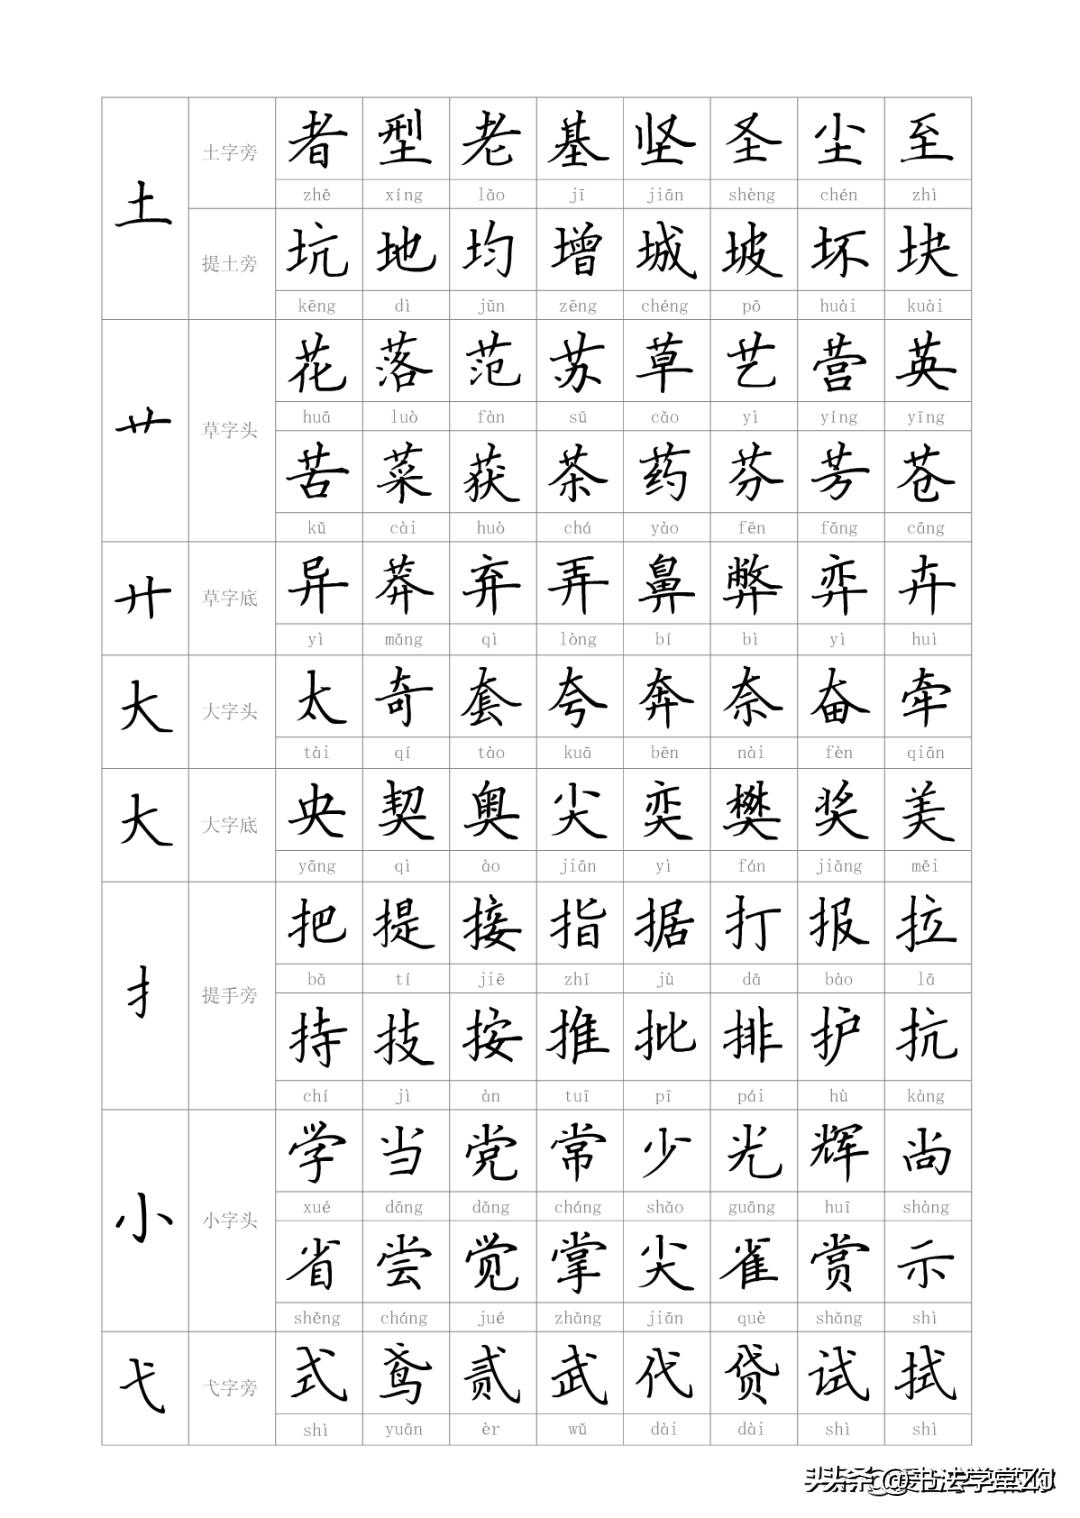 土 土字旁 者 型 老 基 坚 圣 尘 至
zhě xíng lǎo jī jiān shèng chén zhì
提土旁 坑 地 均 增 城 坡 坏 块
kēng dì jūn zēng chéng pō huài kuài
艹 草字头 花 落 范 苏 草 艺 营 英
huā luò fàn sū cǎo yì yíng yīng
苦 菜 获 茶 药 芬 芳 苍
kǔ cài huò chá yào fēn fāng cāng
廾 草字底 异 莽 弃 弄 鼻 弊 弈 卉
yì mǎng qì lòng bí bì yì huì
大 大字头 太 奇 套 夸 奔 奈 奋 牵
tài qí tào kuā bēn nài fèn qiān
大 大字底 央 契 奥 尖 奕 樊 奖 美
yāng qì ào jiān yì fán jiǎng měi
扌 提手旁 把 提 接 指 据 打 报 拉
bǎ tí jiē zhǐ jù dǎ bào lā
持 技 按 推 批 排 护 抗
chí jì àn tuī pī pái hù kàng
小 小字头 学 当 党 常 少 光 辉 尚
xué dāng dǎng cháng shǎo guāng huī shàng
省 尝 觉 掌 尖 雀 赏 示
shěng cháng jué zhǎng jiān què shǎng shì
弋 弋字旁 式 鸢 贰 武 代 贷 试 拭
shì yuān èr wǔ dài dài shì shì
头条 @爱书法学堂ZQ